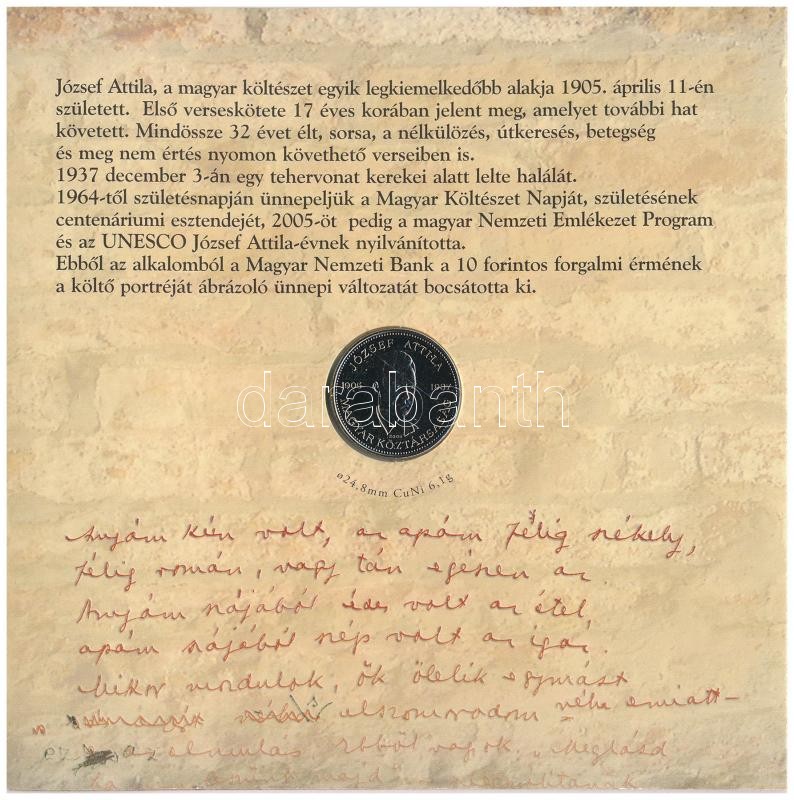 József Attila, a magyar költészet egyik legkiemelkedőbb alakja 1905. április 11-én
született. Első verseskötete 17 éves korában jelent meg, amelyet további hat
követett. Mindössze 32 évet élt, sorsa, a nélkülözés, útkeresés, betegség
és meg nem értés nyomon követhető verseiben is.
1937 december 3-án egy tehervonat kerekei alatt lelte halálát.
1964-től születésnapján ünnepeljük a Magyar Költészet Napját, születésének
centenáriumi esztendejét, 2005-öt pedig a magyar Nemzeti Emlékezet Program
és az UNESCO József Attila-évnek nyilvánította.
Ebből az alkalomból a Magyar Nemzeti Bank a 10 forintos forgalmi érmének
a költő portréját ábrázoló ünnepi változatát bocsátotta ki.
JÓZSEF ATTILA
1905 1937
MAGYAR KÖZTÁRSASÁG
darabanth
ø24,8mm CuNi 6,1g
Anyám kún volt, az apám félig székely,
félig román, vagy tán egészen az.
Anyám szájából édes volt az étel,
apám szájából szép volt az igaz.
Mikor mozdulok, ők ölelik egymást
elszomorodom néha emiatt –
ez az elmulás. Ebből vagyok. „Meglásd
ha majd